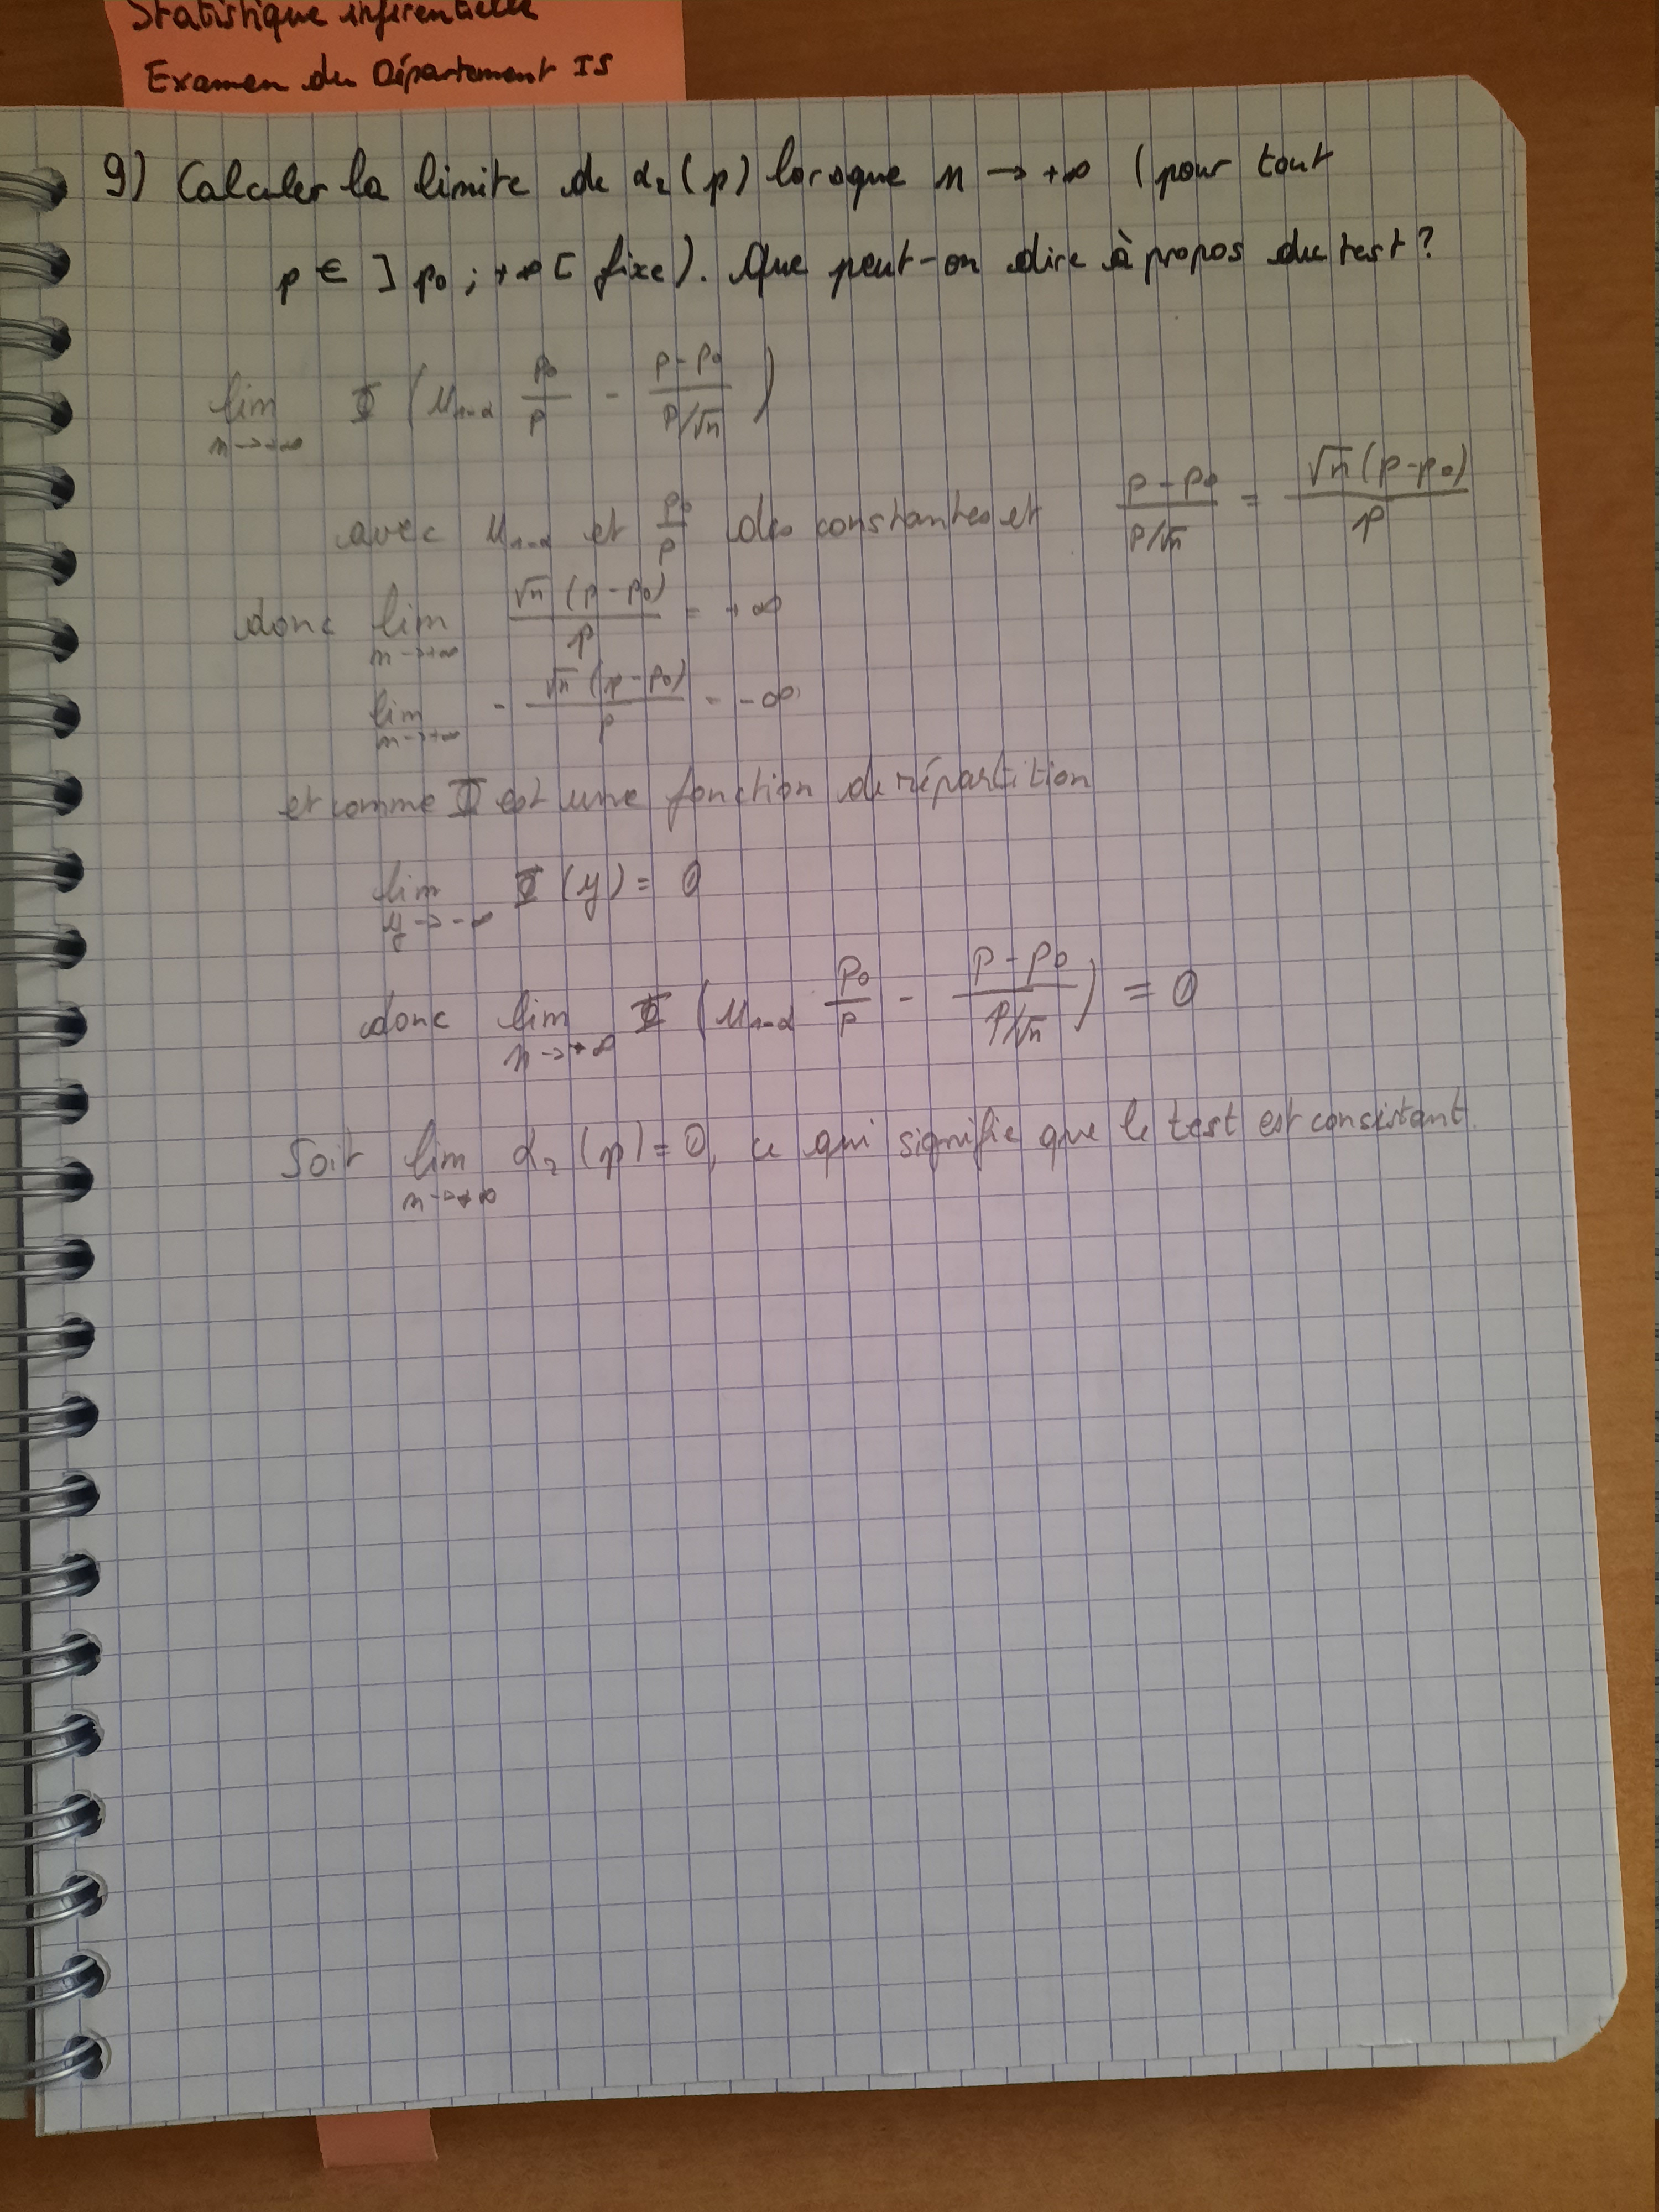 Statistique inférentielle
Examen du Département IS
9) Calculer la limite de α₂(p) lorsque n → +∞ (pour tout
p ∈ ]p₀ ; +∞[ fixe). Que peut-on dire à propos du test ?
lim n→+∞ Φ (u₁₋α p₀/p - (p-p₀)/(p/√n))
avec u₁₋α et p₀/p des constantes et (p-p₀)/(p/√n) = √n(p-p₀)/p
donc lim n→+∞ √n (p-p₀)/p = +∞
lim n→+∞ - √n (p-p₀)/p = -∞
et comme Φ est une fonction de répartition
lim y→-∞ Φ(y) = 0
donc lim n→+∞ Φ (u₁₋α p₀/p - (p-p₀)/(p/√n)) = 0
Soit lim n→+∞ α₂(p) = 0, ce qui signifie que le test est consistant.